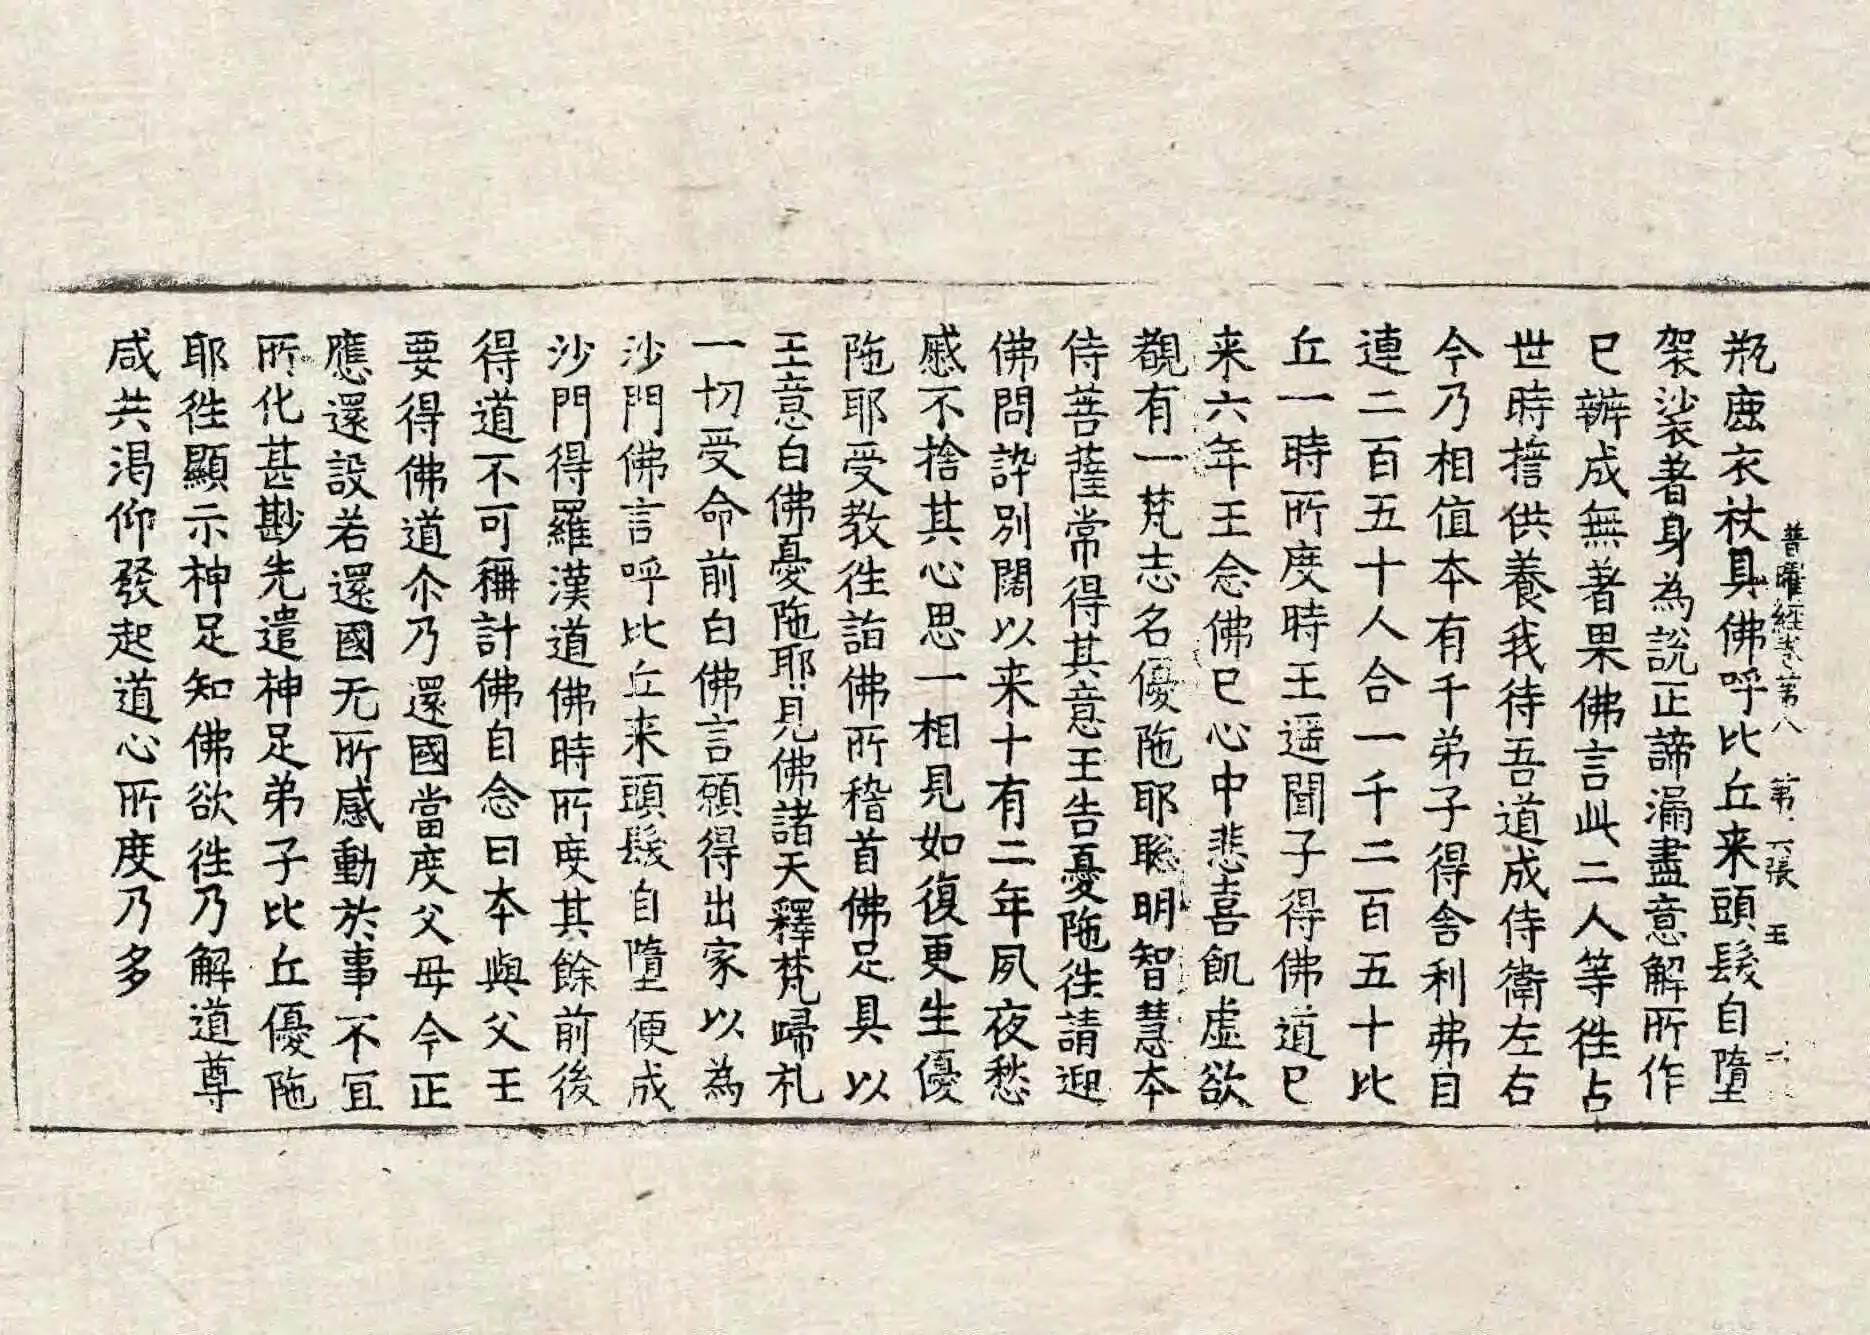 普曜經卷第八 第六張 王
瓶鹿衣杖具佛呼比丘来頭髮自墮
袈裟著身為說正諦漏盡意解所作
已辦成無著果佛言此二人等徃占
世時擔供養我待吾道成侍衛左右
今乃相值本有千弟子得舍利弗目
連二百五十人合一千二百五十比
丘一時所度時王遥聞子得佛道已
来六年王念佛已心中悲喜飢虛欲
覩有一梵志名優陁耶聡明智慧本
侍菩薩常得其意王告憂陁徃請迎
佛問訃別闊以来十有二年夙夜愁
慼不捨其心思一相見如復更生優
陁耶受教徃詣佛所稽首佛足具以
王意白佛憂陁耶見佛諸天釋梵歸礼
一切受命前白佛言願得出家以為
沙門佛言呼比丘来頭髮自墮便成
沙門得羅漢道佛時所度其餘前後
得道不可稱計佛自念曰本與父王
要得佛道尒乃還國當度父母今正
應還設若還國无所感動於事不宜
所化甚尠先遣神足弟子比丘優陁
耶徃顯示神足知佛欲徃乃解道尊
咸共渴仰發起道心所度乃多